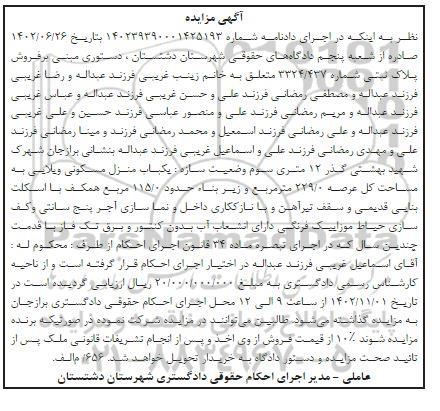 آگهی مزایده
نظر به اینکه در اجرای دادنامه شماره ۱۴۰۲۳۹۳۹۰۰۰۱۴۲۵۱۹۳ بتاریخ ۱۴۰۲/۰۶/۲۶
صادره از شعبه پنجم دادگاه‌های حقوقی شهرستان دشتستان ، دستوری مبنی برفروش
پلاک ثبتی شماره ۳۳۲۴/۴۳۷ متعلق به خانم زینب غریبی فرزند عبداله و رضا غریبی
فرزند عبداله و مصطفی رمضانی فرزند علی و حسن غریبی فرزند عبداله و عباس غریبی
فرزند عبداله و مریم رمضانی فرزند علی و منصور عباسی فرزند حسین و علی غریبی
فرزند عبداله و علی رمضانی فرزند اسمعیل و محمد رمضانی فرزند و مینا رمضانی فرزند
علی و مهدی رمضانی فرزند علی و اسماعیل غریبی فرزند عبداله بنشانی برازجان شهرک
شهید بهشتی گذر ۱۲ متری سوم وضعیت سازه : یکباب منزل مسکونی ویلایی به
مساحت کل عرصه ۲۲۹/۰ مترمربع و زیر بناء حدود ۱۱۵/۰ مربع همکف با اسکلت
بنایی قدیمی و سقف تیرآهن و با نازککاری داخل و نما سازی آجر پنج سانتی وکف
سازی حیاط موزاییک فرنگی دارای انشعاب آب بدون کنتور و برق تک فاز با قدمت
چندین سال که در اجرای تبصره ماده ۳۴ قانون اجرای احکام از طرف : محکوم له :
آقای اسماعیل غریبی فرزند عبداله در اختیار اجرای احکام قرار گرفته است و از ناحیه
کارشناس رسمی دادگستری به مبلغ ۲۰/۰۰۰/۰۰۰/۰۰۰ ریال ارزیابی گردیده است در
تاریخ ۱۴۰۲/۱۱/۰۱ از ساعت ۹ الی ۱۲ محل اجرای احکام حقوقی دادگستری برازجان
به مزایده گذاشته می‌شود. طالبین می‌توانند در مزایده شرکت نموده در صورتیکه برنده
مزایده شوند ۱۰٪ از قیمت فروش از وی اخذ و پس از انجام تشریفات قانونی ملک پس از
تائید صحت مزایده و دستور دادگاه به خریدار تحویل خواهد شد. ۶۵۶/ م‌الف.
عاملی - مدیر اجرای احکام حقوقی دادگستری شهرستان دشتستان